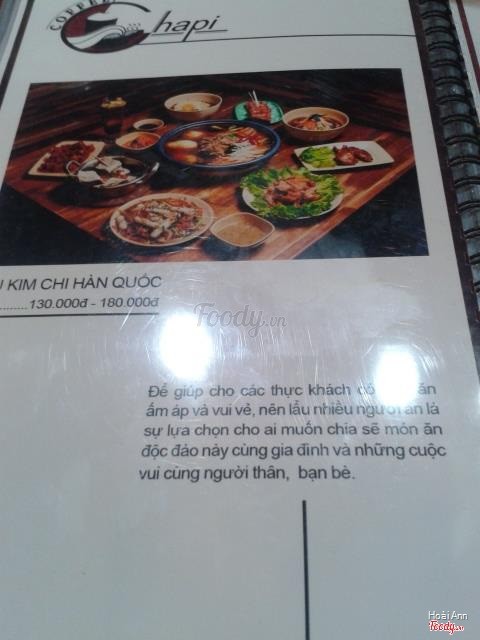 COFFEE
Chapi
KIM CHI HÀN QUỐC
130.000đ - 180.000đ
Foody.vn
Để giúp cho các thực khách có ăn
ấm áp và vui vẻ, nên lẩu nhiều người ăn là
sự lựa chọn cho ai muốn chia sẽ món ăn
độc đáo này cùng gia đình và những cuộc
vui cùng người thân, bạn bè.
Hoài Ann
Foody.vn